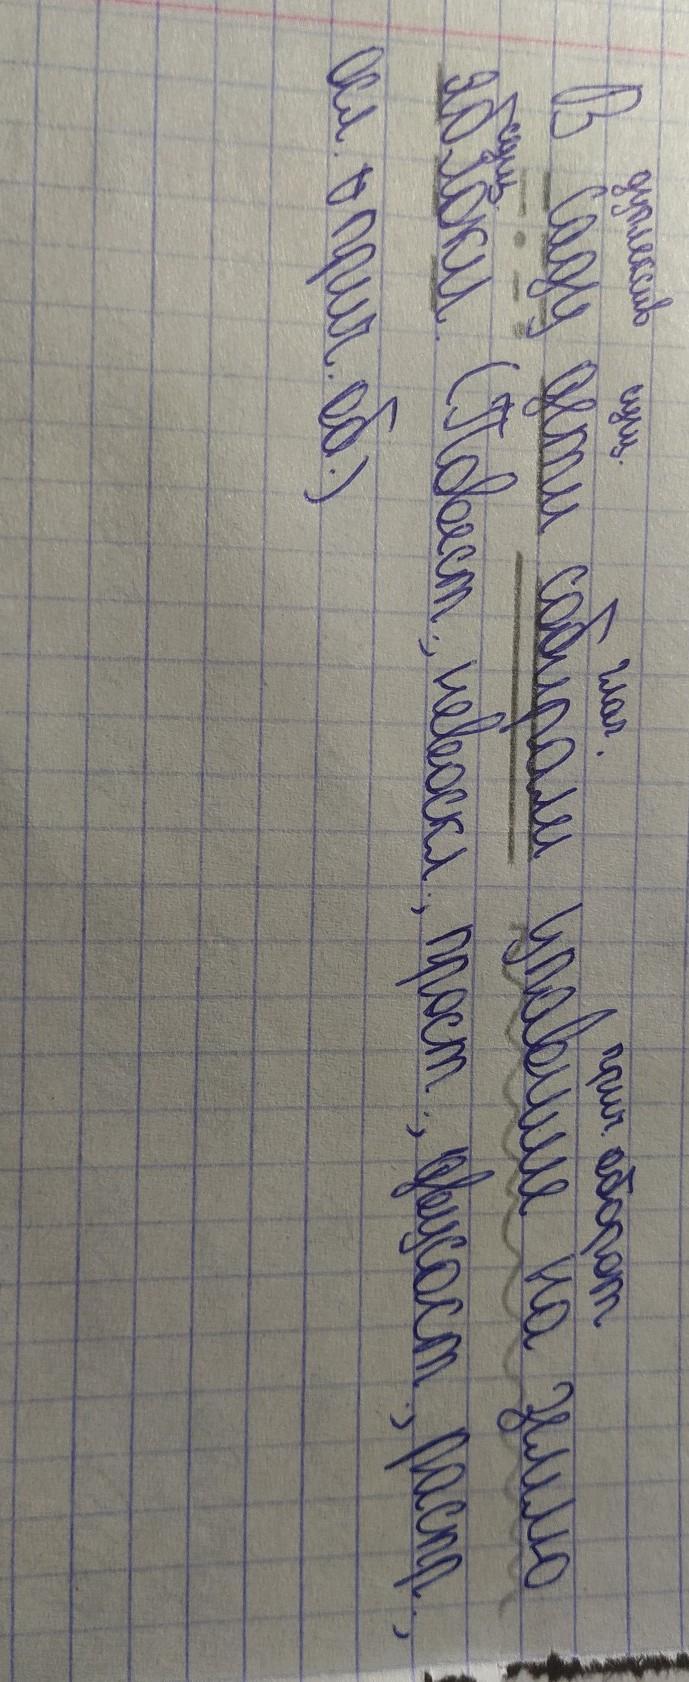 сущ. глаг. прич. оборот
В саду дети собирали упавшие на землю
сущ.
яблоки. (Повест., невоскл., прост., двусост., распр.,
осл. прич. об.)